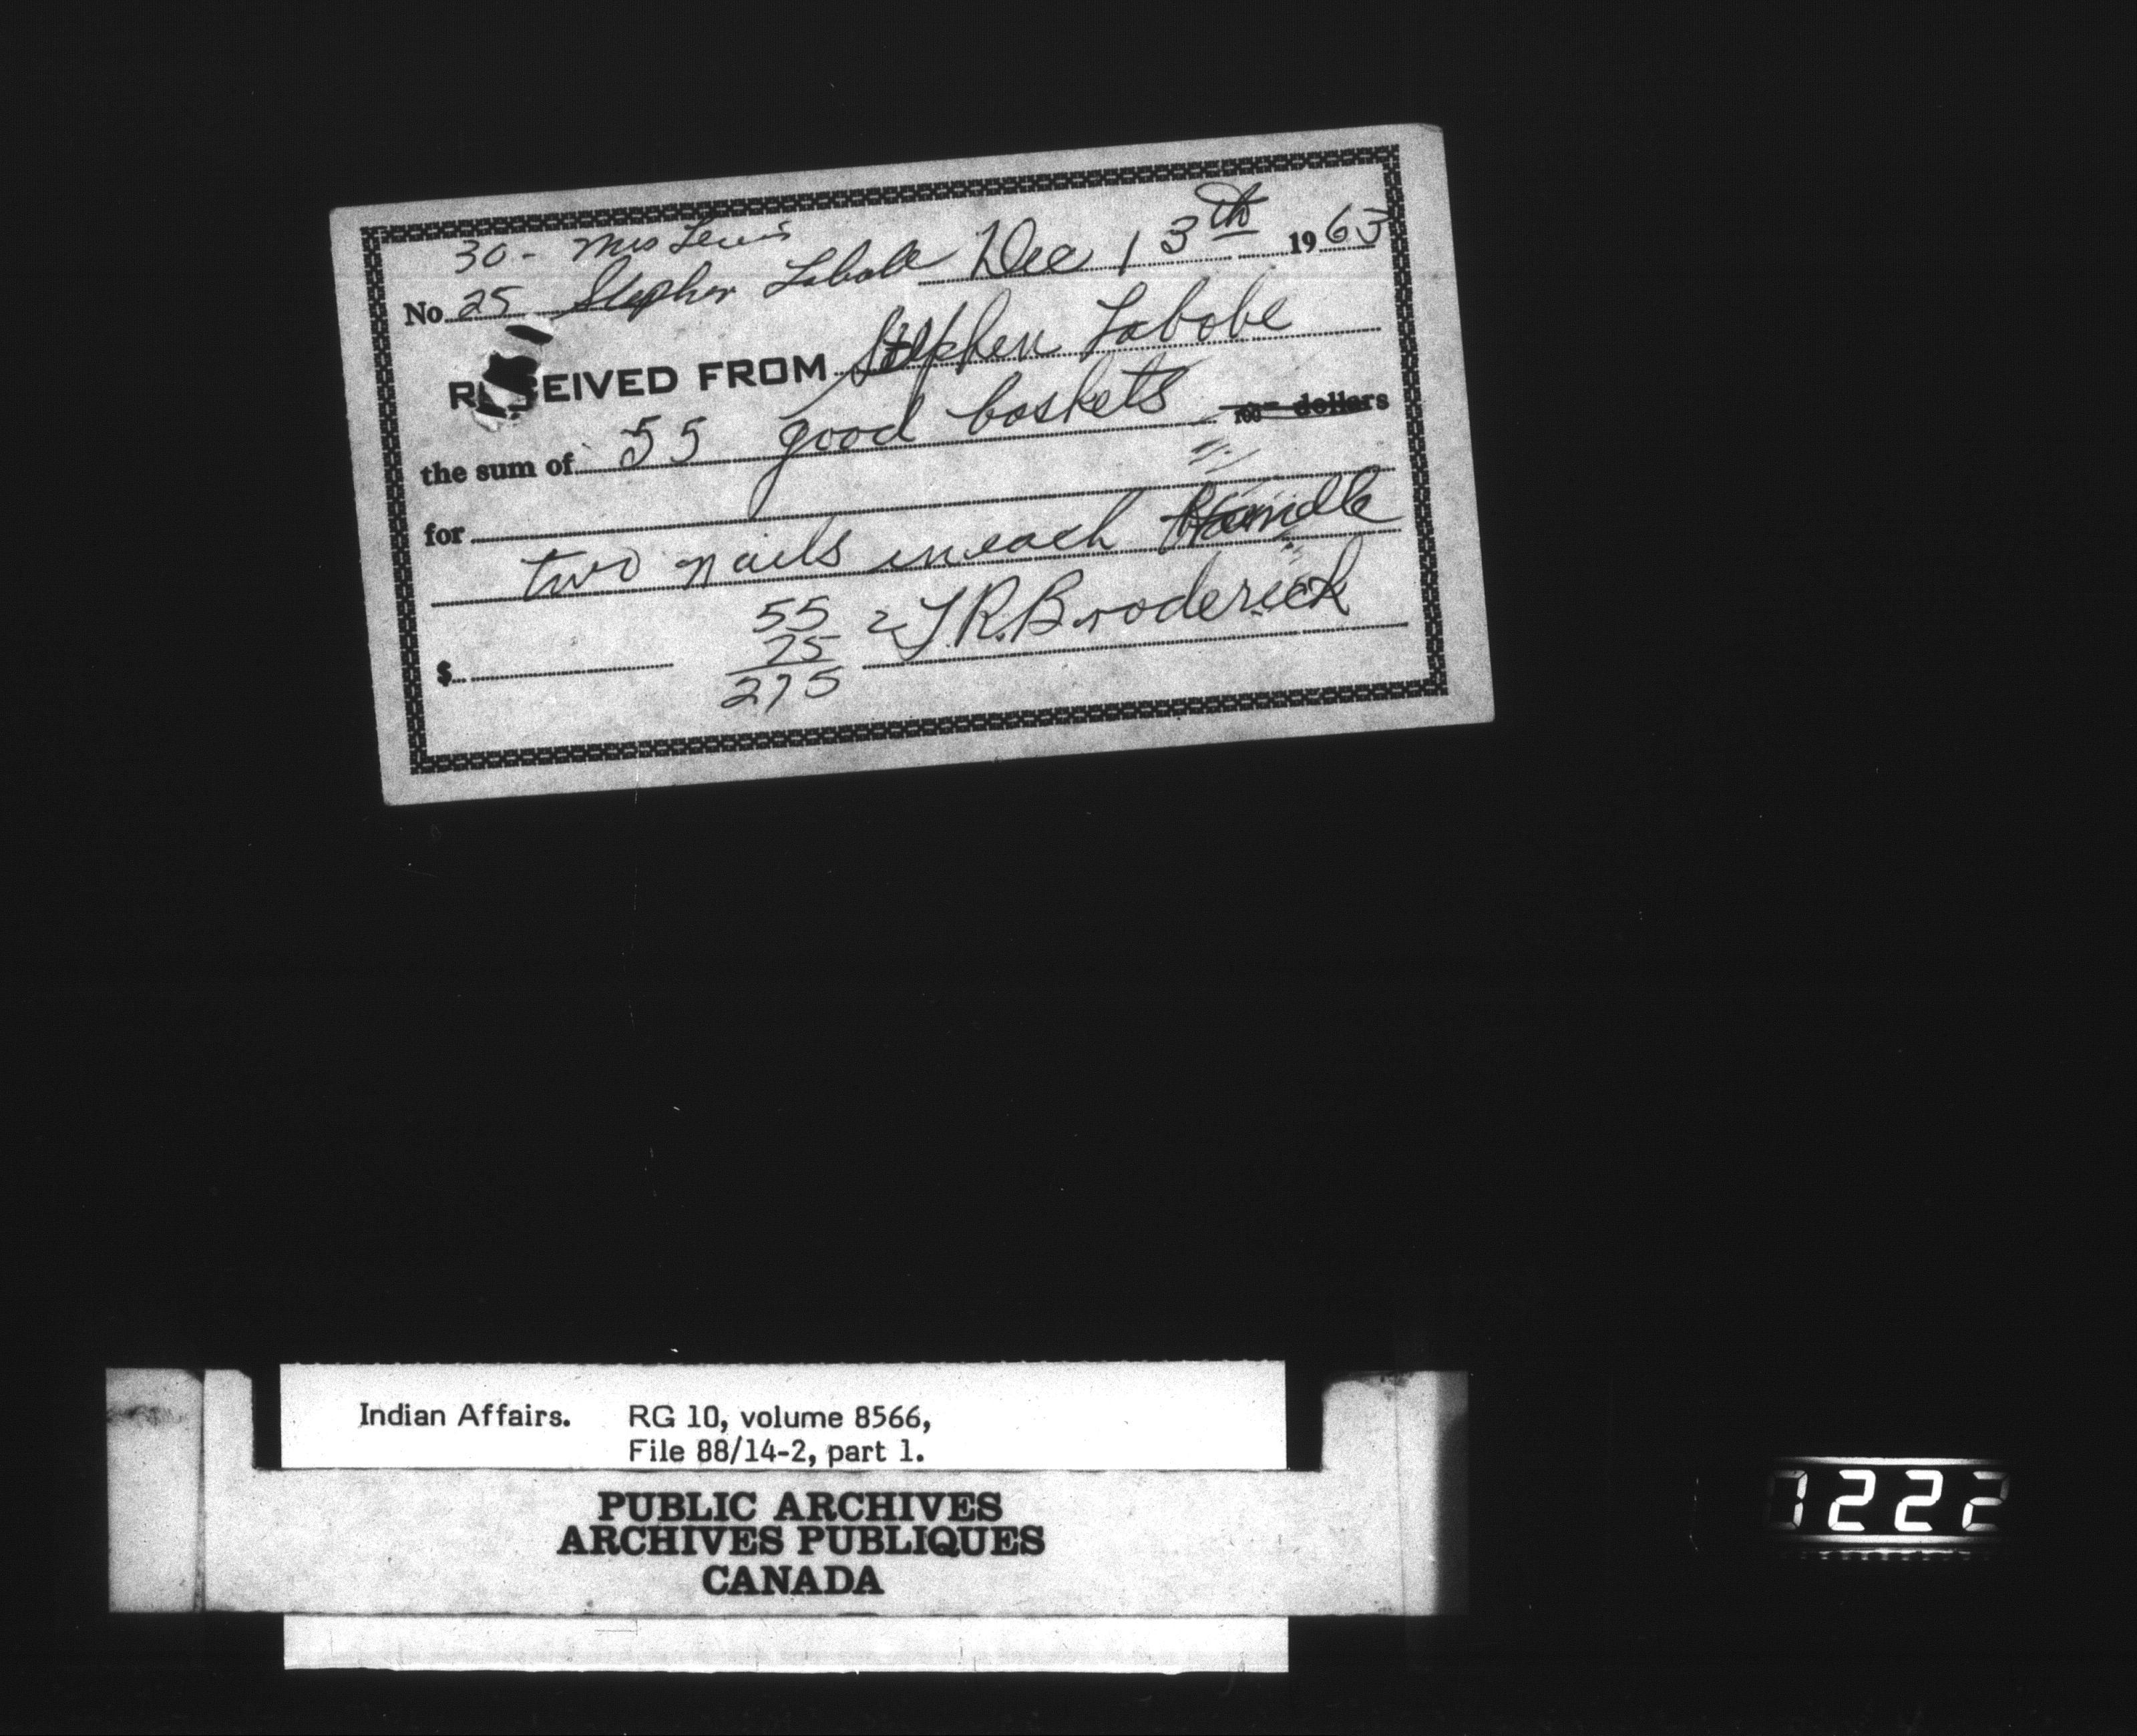 30 - Mrs Lewis
No. 25 Stephen Labobe Dec 13th 1963
RECEIVED FROM Stephen Labobe
the sum of 55 good baskets 100 dollars
for
two nails in each Handle
55
75
275
$ J.R. Broderick
Indian Affairs. RG 10, volume 8566,
File 88/14-2, part 1.
PUBLIC ARCHIVES
ARCHIVES PUBLIQUES
CANADA
7222